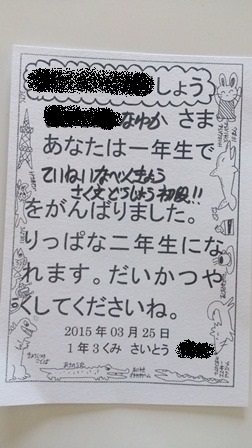 しょう
なゆか さま
あなたは一年生で
ていねいなべんきょう
さく文とうしょう初段!!
をがんばりました。
りっぱな二年生にな
れます。だいかつや
くしてくださいね。
2015年03月25日
1年3くみ さいとう